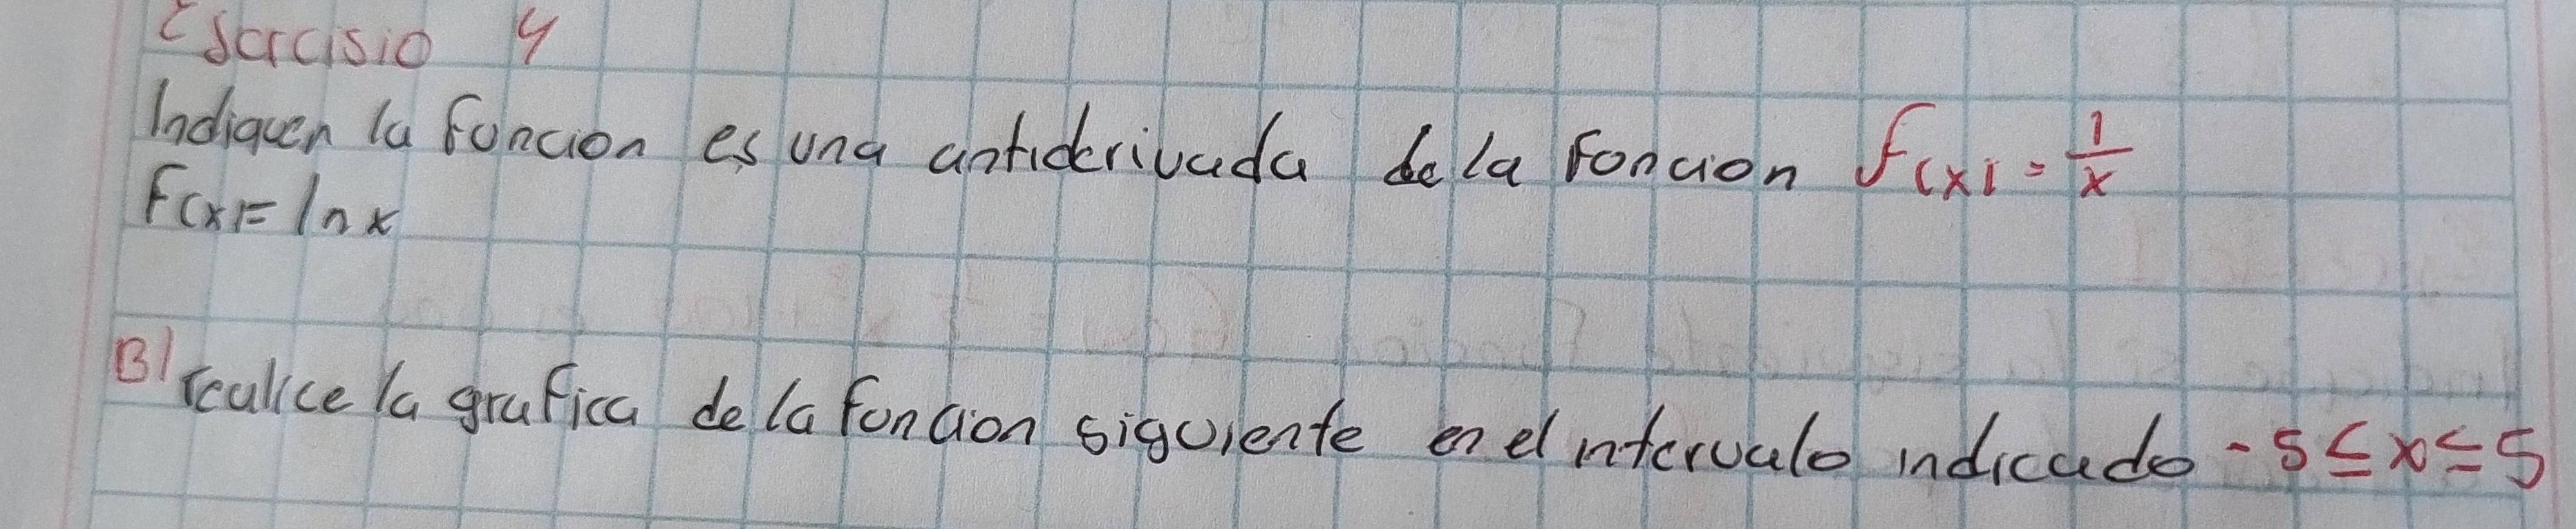 Esercisio 4
Indiquen la funcion es una antiderivada de la foncion f(x) = 1/x
F(x) = ln x
B) realice la grafica de la foncion siguiente en el ntervalo indicado -5 ≤ x ≤ 5